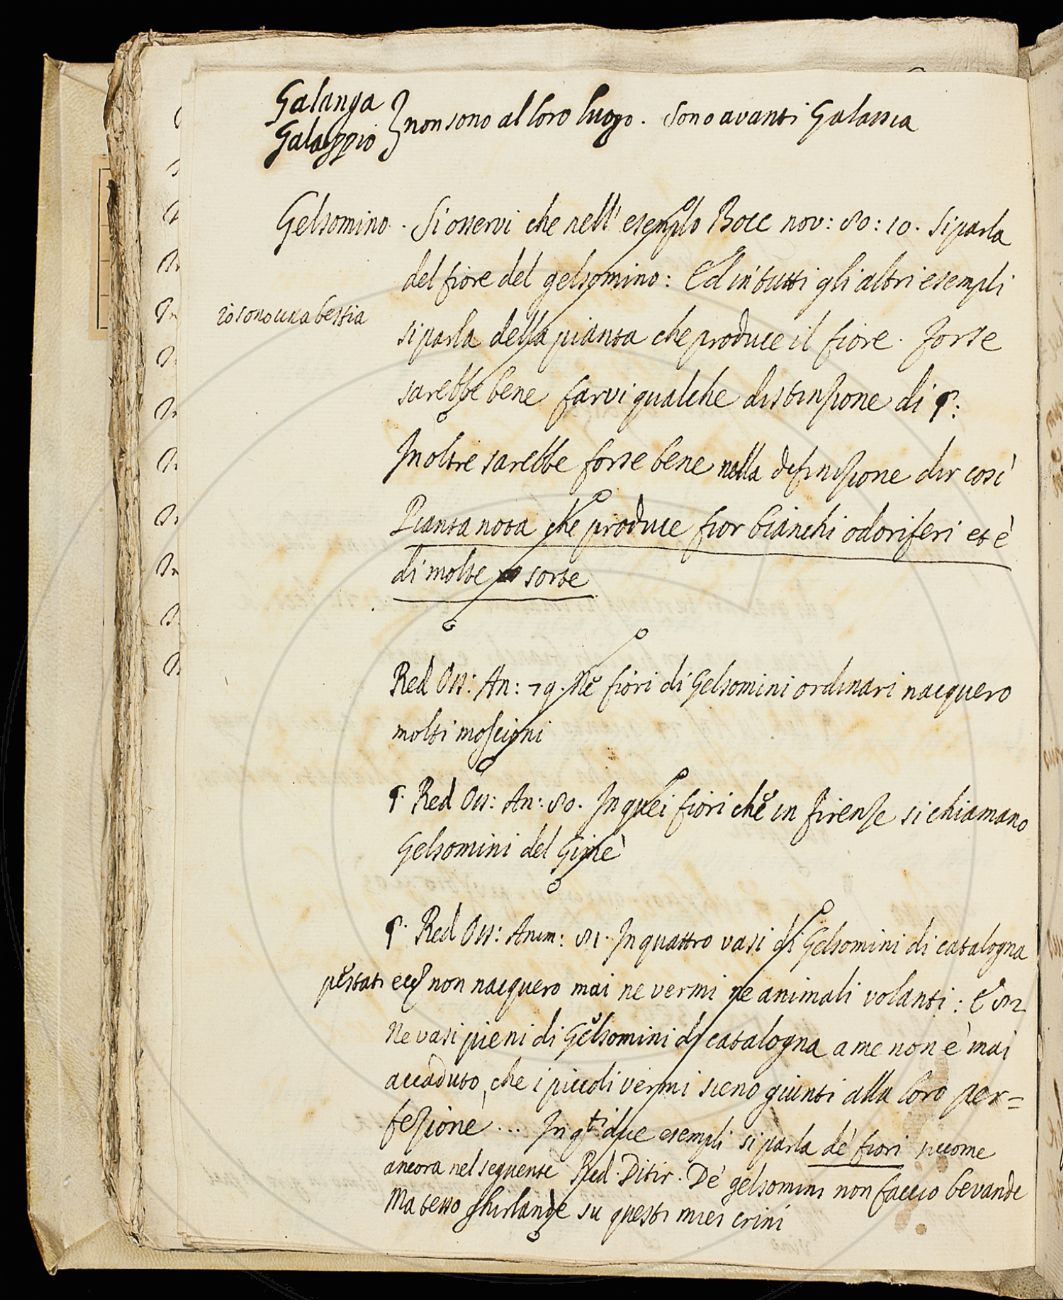 Galanga
Galappio } non sono al loro luogo. Sono avanti Galassia
Gelsomino. Si osservi che nell' esemplo Bocc nov: 80: 10. si parla
del fiore del gelsomino: Ed in tutti gli altri esempli
io sono una bestia
si parla della pianta che produce il fiore. Forse
sarebbe bene farvi qualche distinzione di §:
Inoltre sarebbe forse bene nella definizione dir così
Pianta nota che produce fior bianchi odoriferi et è
di molte sorte
Red Oss: An: 79. Ne fiori di Gelsomini ordinari nacquero
molti moscioni
§. Red Oss: An: 80. In quei fiori che in Firenze si chiamano
Gelsomini del Gimè
§. Red Oss: Anim: 81. In quattro vasi di Gelsomini di catalogna
pestati ec non nacquero mai ne vermi ne animali volanti: E 82
Ne vasi pieni di Gelsomini di catalogna a me non è mai
accaduto, che i piccoli vermi sieno giunti alla loro per=
fezione ... In qti due esempli si parla de fiori siccome
ancora nel seguente Red. Ditir. De gelsomini non faccio bevande
Ma tesso ghirlande su questi miei crini